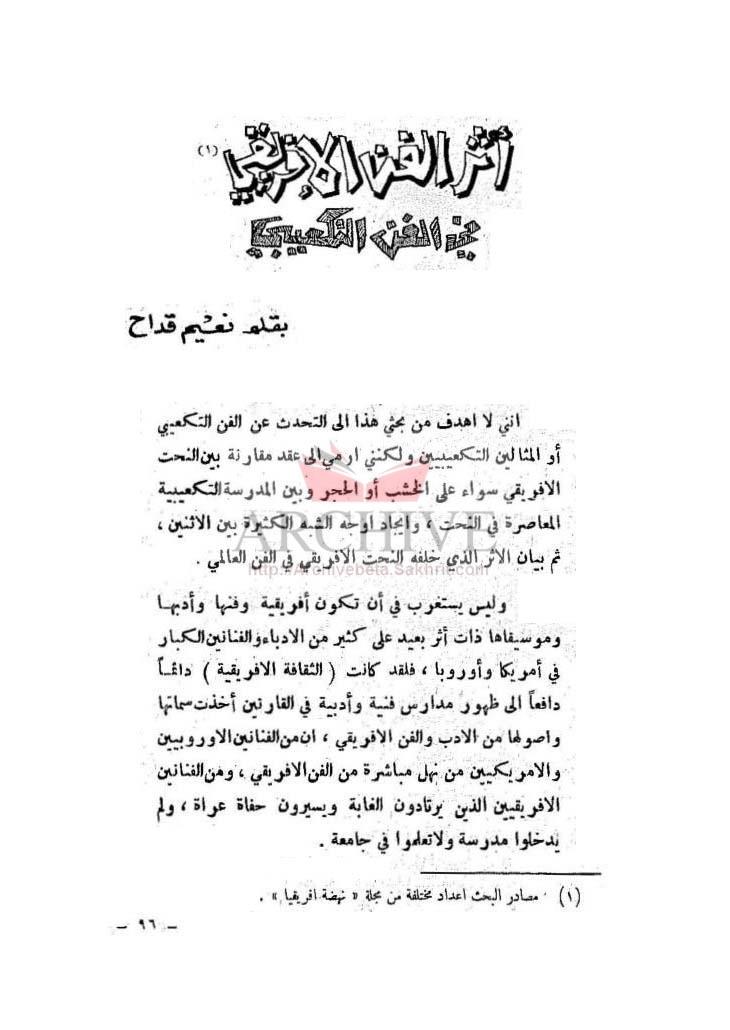 أثر الفن الإفريقي (١)
في الفن التكعيبي
بقلم نعيم قداح
انني لا اهدف من بحثي هذا الى التحدث عن الفن التكعيبي
أو المثالين التكعيبيين ولكنني ارمي الى عقد مقارنة بين النحت
الافريقي سواء على الخشب أو الحجر وبين المدرسة التكعيبية
المعاصرة في النحت ، وايجاد اوجه الشبه الكثيرة بين الاثنين ،
ثم بيان الاثر الذي خلفه النحت الافريقي في الفن العالمي .
ARCHIVE
http://Archivebeta.Sakhrit.com
وليس يستغرب في أن تكون أفريقية وفنها وأدبها
وموسيقاها ذات أثر بعيد على كثير من الادباء والفنانين الكبار
في أمريكا وأوروبا ، فلقد كانت ( الثقافة الافريقية ) دائماً
دافعاً الى ظهور مدارس فنية وأدبية في القارتين أخذت سماتها
واصولها من الادب والفن الافريقي ، ان من الفنانين الاوروبيين
والامريكيين من نهل مباشرة من الفن الافريقي ، ومن الفنانين
الافريقيين الذين يرتادون الغابة ويسيرون حفاة عراة ، ولم
يدخلوا مدرسة ولا تعلموا في جامعة .
(١) مصادر البحث اعداد مختلفة من مجلة « نهضة افريقيا » .
– ٩٦ –